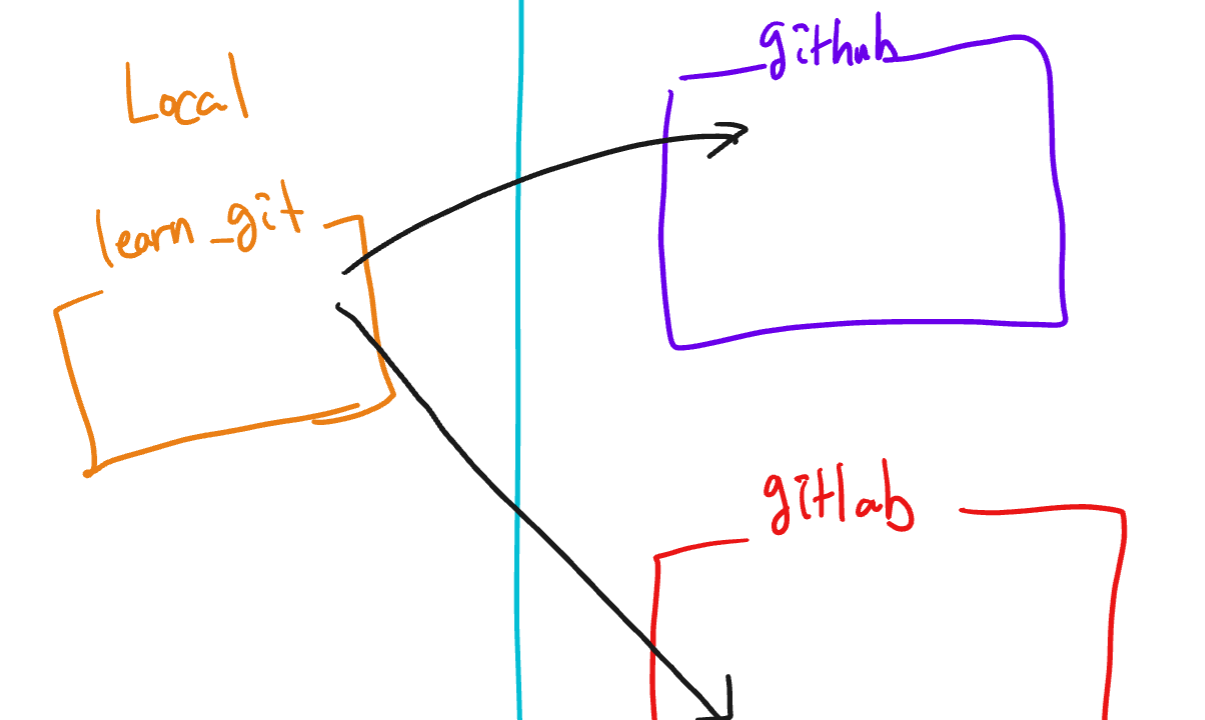 Local
learn_git
github
gitlab